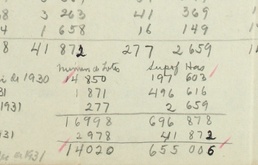 8 3 263 41 369
4 1 658 16 149
8 41 872 277 2 659
Número de Lotes Superf Has
1930 14 850 197 603
1 871 496 616
1931 277 2 659
16998 696 878
1931 2978 41 872
14020 655 006